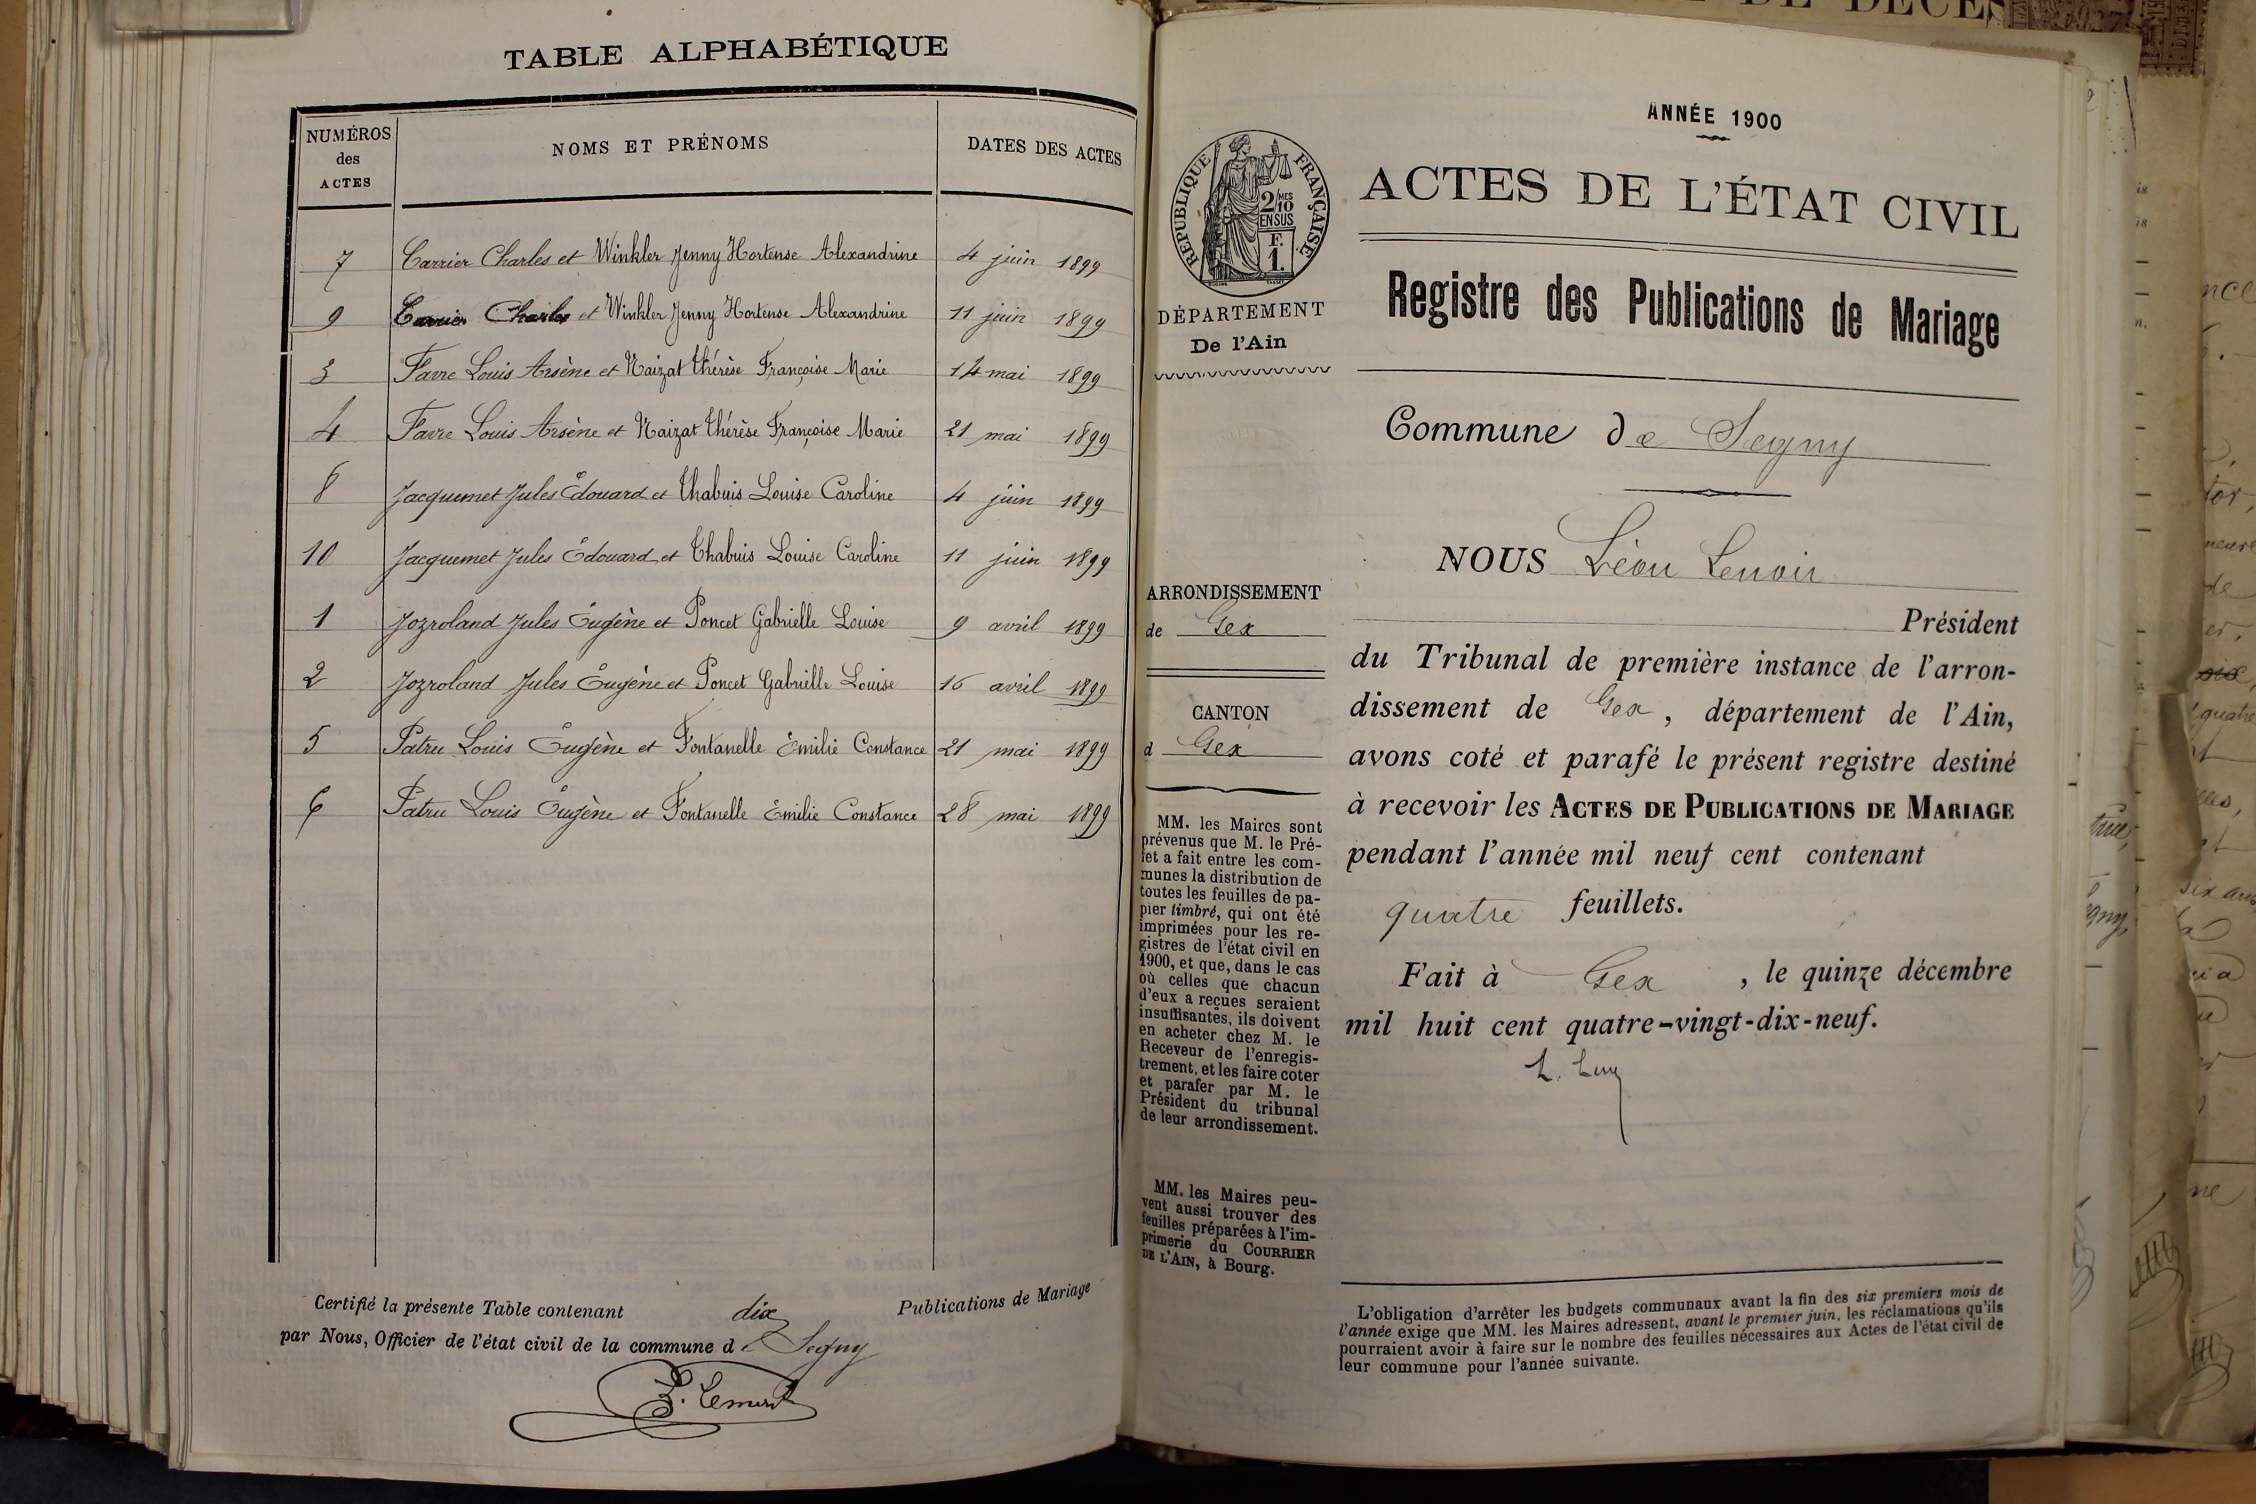 TABLE ALPHABÉTIQUE
NUMÉROS des ACTES
NOMS ET PRÉNOMS
DATES DES ACTES
7 Carrier Charles et Winkler Jenny Hortense Alexandrine 4 juin 1899
9 Carrier Charles et Winkler Jenny Hortense Alexandrine 11 juin 1899
3 Favre Louis Arsène et Naizat Thérèse Françoise Marie 14 mai 1899
4 Favre Louis Arsène et Naizat Thérèse Françoise Marie 21 mai 1899
8 Jacquemet Jules Édouard et Thabuis Louise Caroline 4 juin 1899
10 Jacquemet Jules Édouard et Thabuis Louise Caroline 11 juin 1899
1 Jozroland Jules Eugène et Poncet Gabrielle Louise 9 avril 1899
2 Jozroland Jules Eugène et Poncet Gabrielle Louise 16 avril 1899
5 Patru Louis Eugène et Fontanelle Emilie Constance 21 mai 1899
6 Patru Louis Eugène et Fontanelle Emilie Constance 28 mai 1899
Certifié la présente Table contenant dix Publications de Mariage
par Nous, Officier de l'état civil de la commune de Segny
ANNÉE 1900
RÉPUBLIQUE FRANÇAISE
2/MES
10
EN SUS
F.
1.
DÉPARTEMENT
De l'Ain
ARRONDISSEMENT
de Gex
CANTON
d Gex
MM. les Maires sont
prévenus que M. le Pré-
fet a fait entre les com-
munes la distribution de
toutes les feuilles de pa-
pier timbré, qui ont été
imprimées pour les re-
gistres de l'état civil en
1900, et que, dans le cas
où celles que chacun
d'eux a reçues seraient
insuffisantes, ils doivent
en acheter chez M. le
Receveur de l'enregis-
trement, et les faire coter
et parafer par M. le
Président du tribunal
de leur arrondissement.
MM. les Maires peu-
vent aussi trouver des
feuilles préparées à l'im-
primerie du COURRIER
DE L'AIN, à Bourg.
ACTES DE L'ÉTAT CIVIL
Registre des Publications de Mariage
Commune de Segny
NOUS Léon Lenoir
Président
du Tribunal de première instance de l'arron-
dissement de Gex, département de l'Ain,
avons coté et parafé le présent registre destiné
à recevoir les ACTES DE PUBLICATIONS DE MARIAGE
pendant l'année mil neuf cent contenant
quatre feuillets.
Fait à Gex, le quinze décembre
mil huit cent quatre-vingt-dix-neuf.
L'obligation d'arrêter les budgets communaux avant la fin des six premiers mois de
l'année exige que MM. les Maires adressent, avant le premier juin, les réclamations qu'ils
pourraient avoir à faire sur le nombre des feuilles nécessaires aux Actes de l'état civil de
leur commune pour l'année suivante.